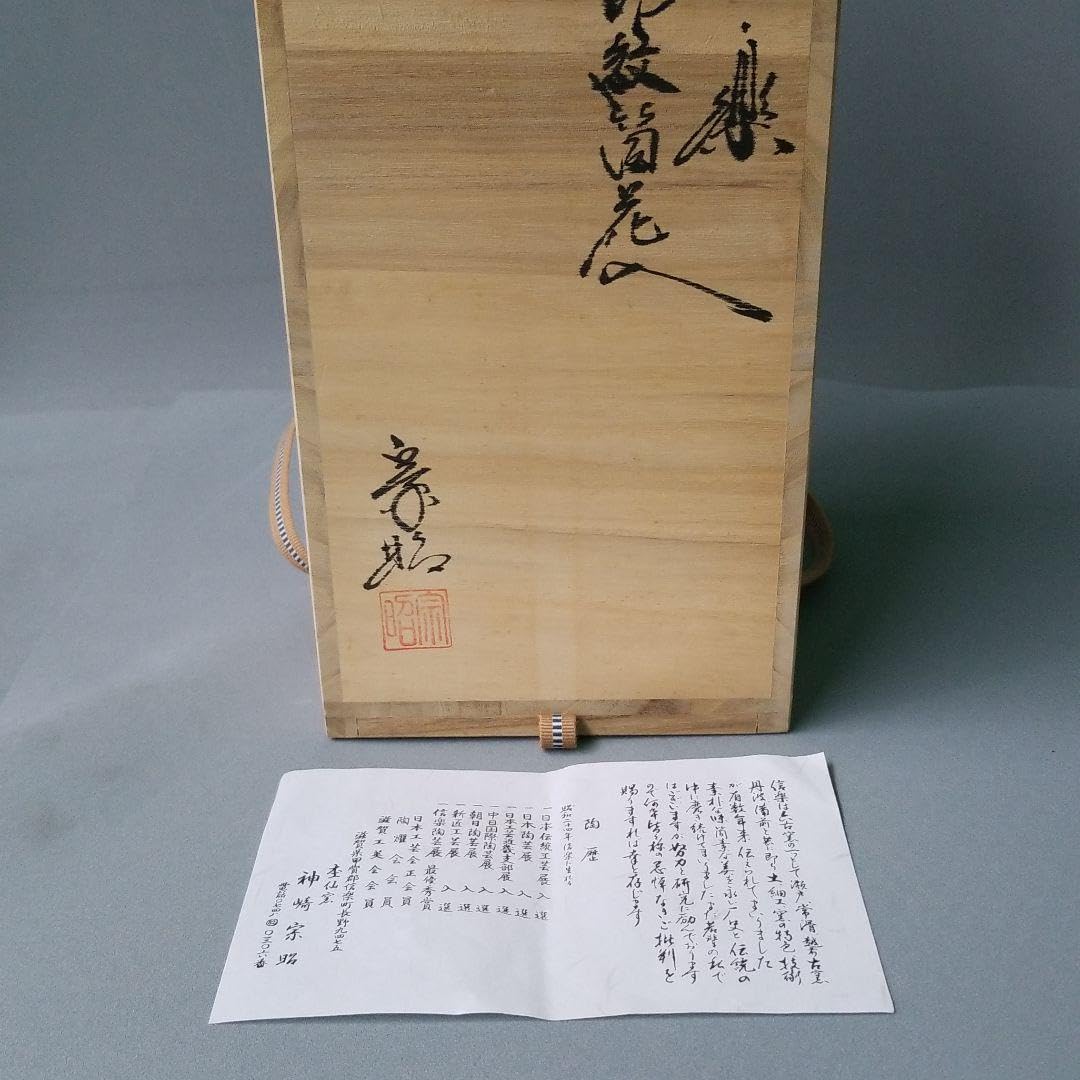 楽
紋筒花入
宗昭
宗昭
信楽は六古窯の一つとして瀬戸常滑越前古窯
丹波備前と共に
が有数年来伝えられてまいりました
素朴な時間美を永い歴史と伝統の
中に磨き続けてまいりました まだ若輩の私で
はございますが努力と研究に励んでおります
ので何卒皆々様の忌憚なきご批判を
賜りますれば幸と存じます
陶歴
昭和二十四年信楽に生れる
一日本伝統工芸展 入選
一日本陶芸展 入選
一日本工芸近畿支部展 入選
一中日国際陶芸展 入選
一朝日陶芸展 入選
一新近工芸展 入選
一信楽陶芸展 最優秀賞
日本工芸会正会員
陶燿会会員
滋賀工美会会員
滋賀県甲賀郡信楽町長野九四七五
神崎宗昭